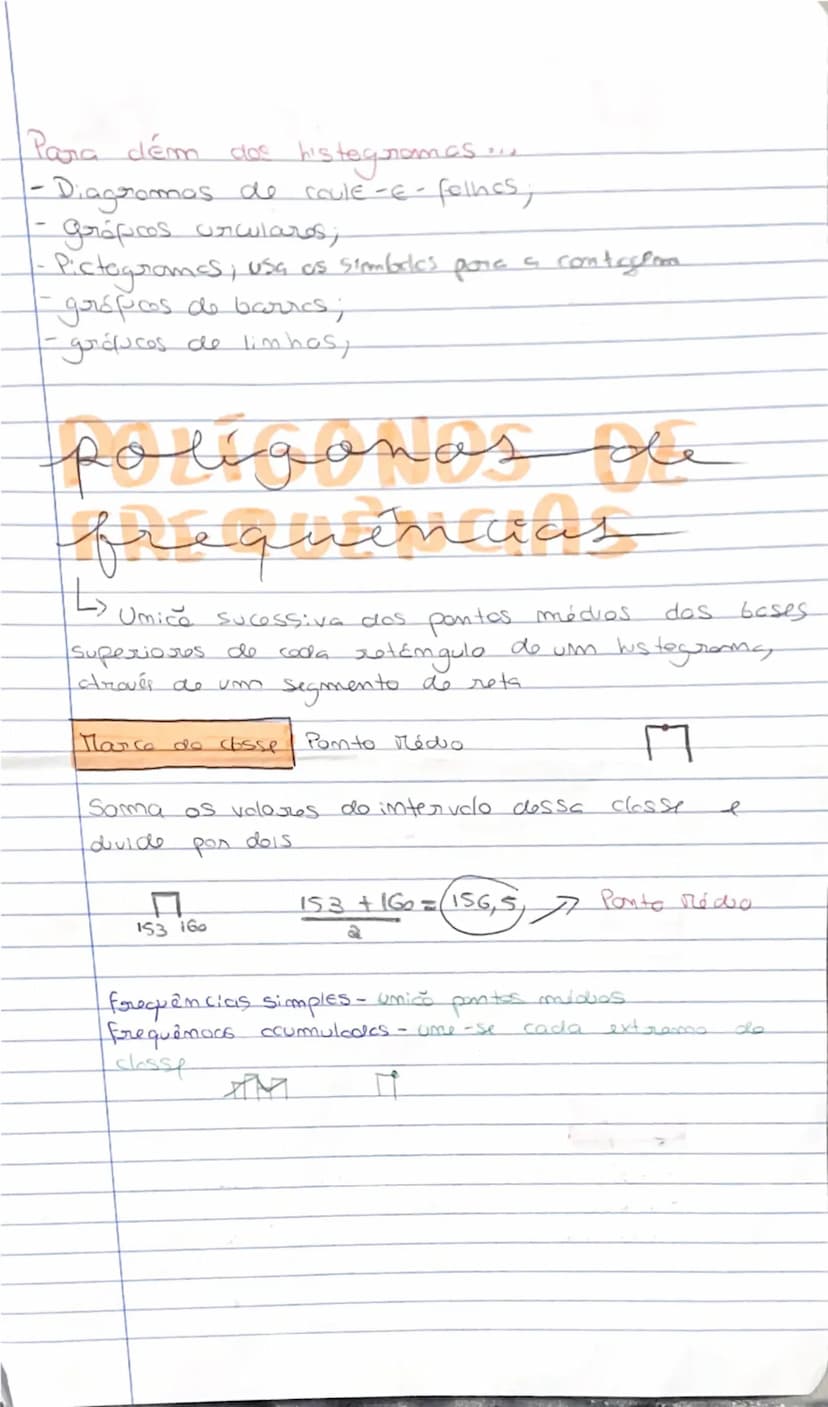 Para além dos histogramas...
- Diagramas de caule-e-folhas;
- gráficos circulares;
- Pictogramas, usa os símbolos para a contagem
- gráficos de barras;
- gráficos de linhas;
polígonos de
frequências
↳ União sucessiva dos pontos médios das bases
superiores de cada retângulo de um histograma,
através de um segmento de reta
Marca da classe Ponto Médio
Soma os valores do intervalo dessa classe e
divide por dois
153 160 153 + 160 = 156,5 → Ponto Médio
2
frequências simples - união pontos médios
frequências acumuladas - une-se cada extremo da
classe